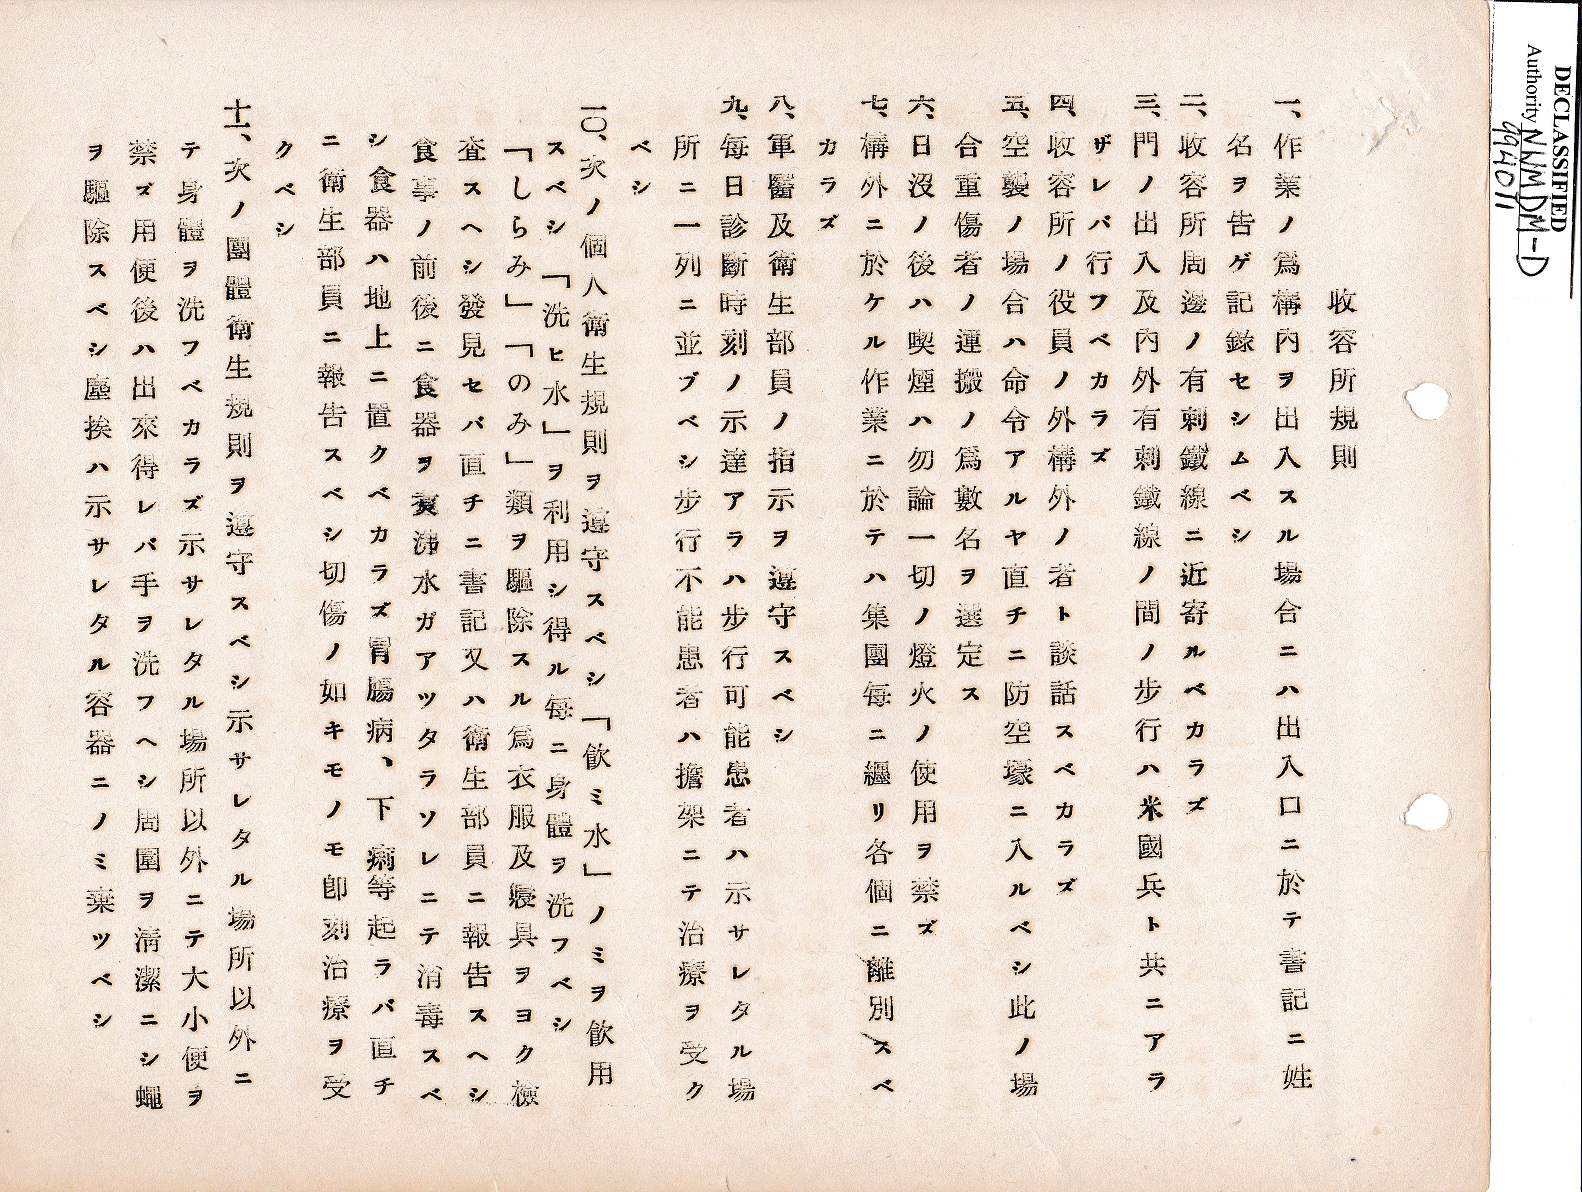 收容所規則
一、作業ノ爲構內ヲ出入スル場合ニハ出入口ニ於テ書記ニ姓
名ヲ告ゲ記錄セシムベシ
二、收容所周邊ノ有刺鐵線ニ近寄ルベカラズ
三、門ノ出入及內外有刺鐵線ノ間ノ步行ハ米國兵ト共ニアラ
ザレバ行フベカラズ
四、收容所ノ役員ノ外構外ノ者ト談話スベカラズ
五、空襲ノ場合ハ命令アルヤ直チニ防空壕ニ入ルベシ此ノ場
合重傷者ノ運搬ノ爲數名ヲ選定ス
六、日沒ノ後ハ喫煙ハ勿論一切ノ燈火ノ使用ヲ禁ズ
七、構外ニ於ケル作業ニ於テハ集團每ニ纒リ各個ニ離別スベ
カラズ
八、軍醫及衛生部員ノ指示ヲ遵守スベシ
九、每日診斷時刻ノ示達アラハ步行可能患者ハ示サレタル場
所ニ一列ニ並ブベシ步行不能患者ハ擔架ニテ治療ヲ受ク
ベシ
一〇、次ノ個人衛生規則ヲ遵守スベシ「飮ミ水」ノミヲ飮用
スベシ「洗ヒ水」ヲ利用シ得ル每ニ身體ヲ洗フベシ
「しらみ」「のみ」類ヲ驅除スル爲衣服及寢具ヲヨク檢
査スヘシ發見セバ直チニ書記又ハ衛生部員ニ報告スヘシ
食事ノ前後ニ食器ヲ煑沸水ガアツタラソレニテ消毒スベ
シ食器ハ地上ニ置クベカラズ胃腸病、下痢等起ラバ直チ
ニ衛生部員ニ報告スベシ切傷ノ如キモノモ卽刻治療ヲ受
クベシ
十一、次ノ團體衛生規則ヲ遵守スベシ示サレタル場所以外ニ
テ身體ヲ洗フベカラズ示サレタル場所以外ニテ大小便ヲ
禁ズ用便後ハ出來得レバ手ヲ洗フヘシ周圍ヲ淸潔ニシ蠅
ヲ驅除スベシ塵挨ハ示サレタル容器ニノミ棄ツベシ
DECLASSIFIED
Authority NNMDM-D
994011